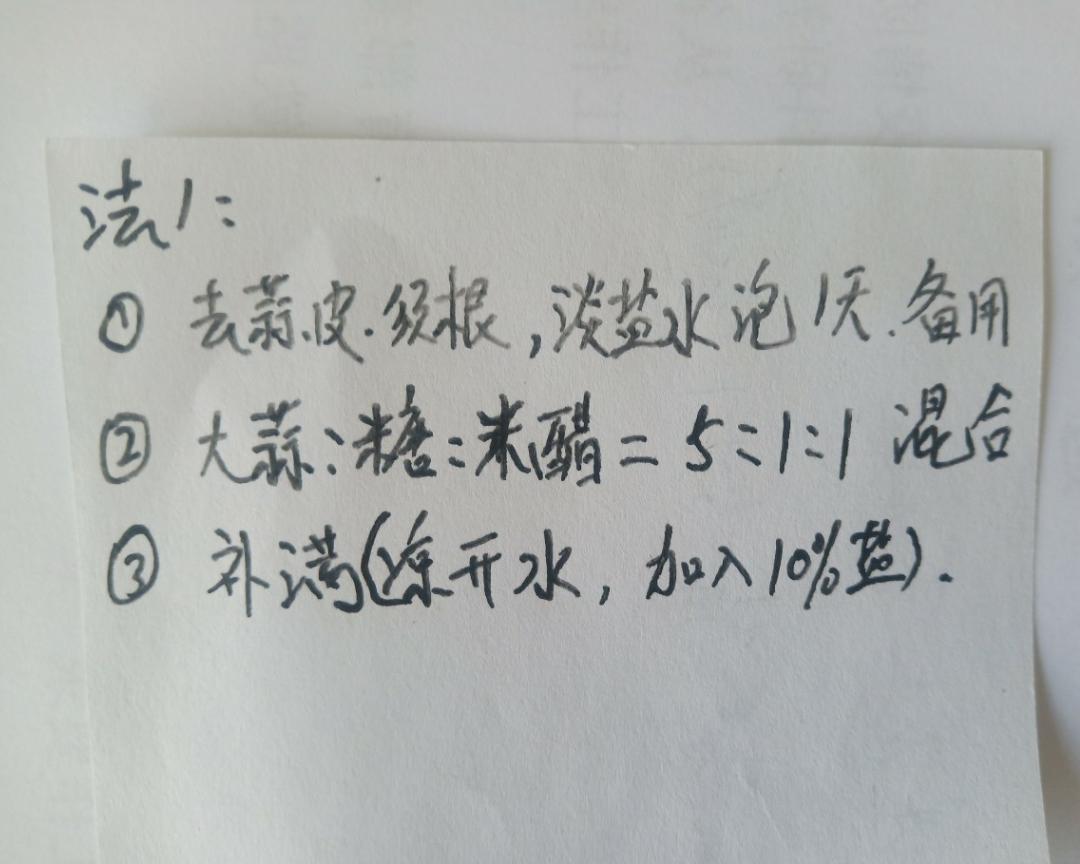 法1:
① 去蒜皮.须根,淡盐水泡1天.备用
② 大蒜:糖:米醋=5:1:1 混合
③ 补满(凉开水,加入10%盐).